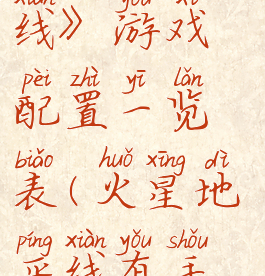 xiàn yóu xì
线》游戏
pèi zhì yī lǎn
配置一览
biǎo huǒ xīng dì
表（火星地
píng xiàn yǒu shǒu
平线有手